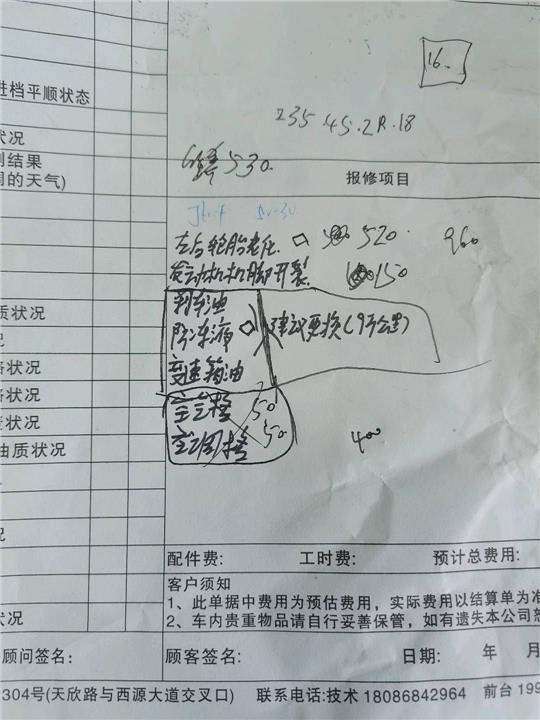 16.
进档平顺状态
235.45.ZR.18
状况
530.
则结果
周的天气)
报修项目
5W-30
左右轮胎老化. 520. 960
发动机机脚开裂. 150
刹车油
质状况
防冻液 建议更换(9千公里)
变速箱油
状况
空气格 50
空调格 50 400
油质状况
况
配件费: 工时费: 预计总费用:
客户须知
1、此单据中费用为预估费用，实际费用以结算单为准
2、车内贵重物品请自行妥善保管，如有遗失本公司恕
状况
顾问签名: 顾客签名: 日期: 年 月
304号(天欣路与西源大道交叉口) 联系电话:技术 18086842964 前台 199